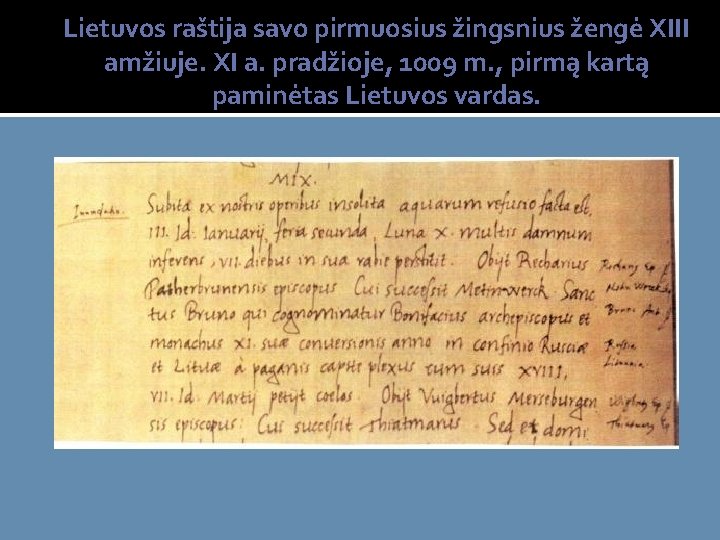 Lietuvos raštija savo pirmuosius žingsnius žengė XIII
amžiuje. XI a. pradžioje, 1009 m., pirmą kartą
paminėtas Lietuvos vardas.
MIX.
Subita ex nostris operibus insolita aquarum refusio facta est,
III. Id. Ianuarij, feria secunda, Luna X. multis damnum
inferens, VII. diebus in sua rabie perstitit. Obijt Recharius
Patherbrunensis episcopus Cui successit Metinwerck. Sanc
tus Bruno qui cognominatur Bonifacius archepiscopus et
monachus XI. suæ conversionis anno in confinio Rusciæ
et Lituæ à paganis capite plexus cum suis XVIII,
VII. Id. Martij petijt coelos. Obijt Vuigbertus Merseburgen
sis episcopus: Cui successit Thiatmarus Sed et domi